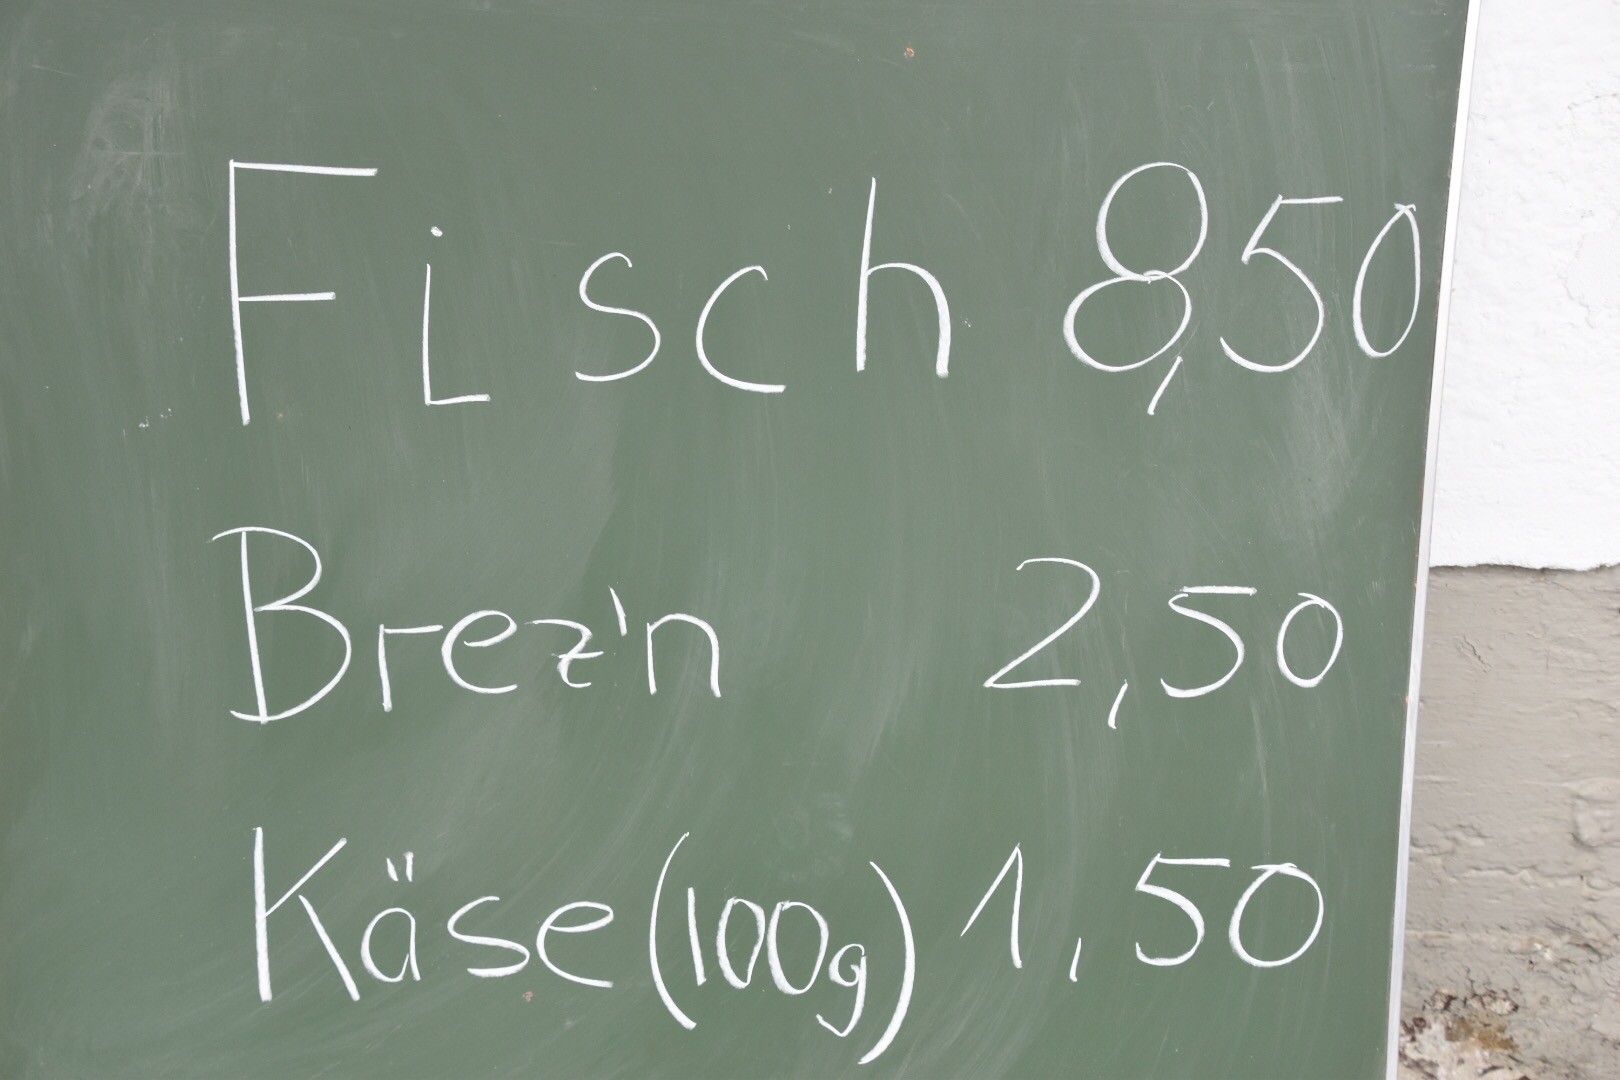 Fisch 8,50
Brez'n 2,50
Käse (100g) 1,50